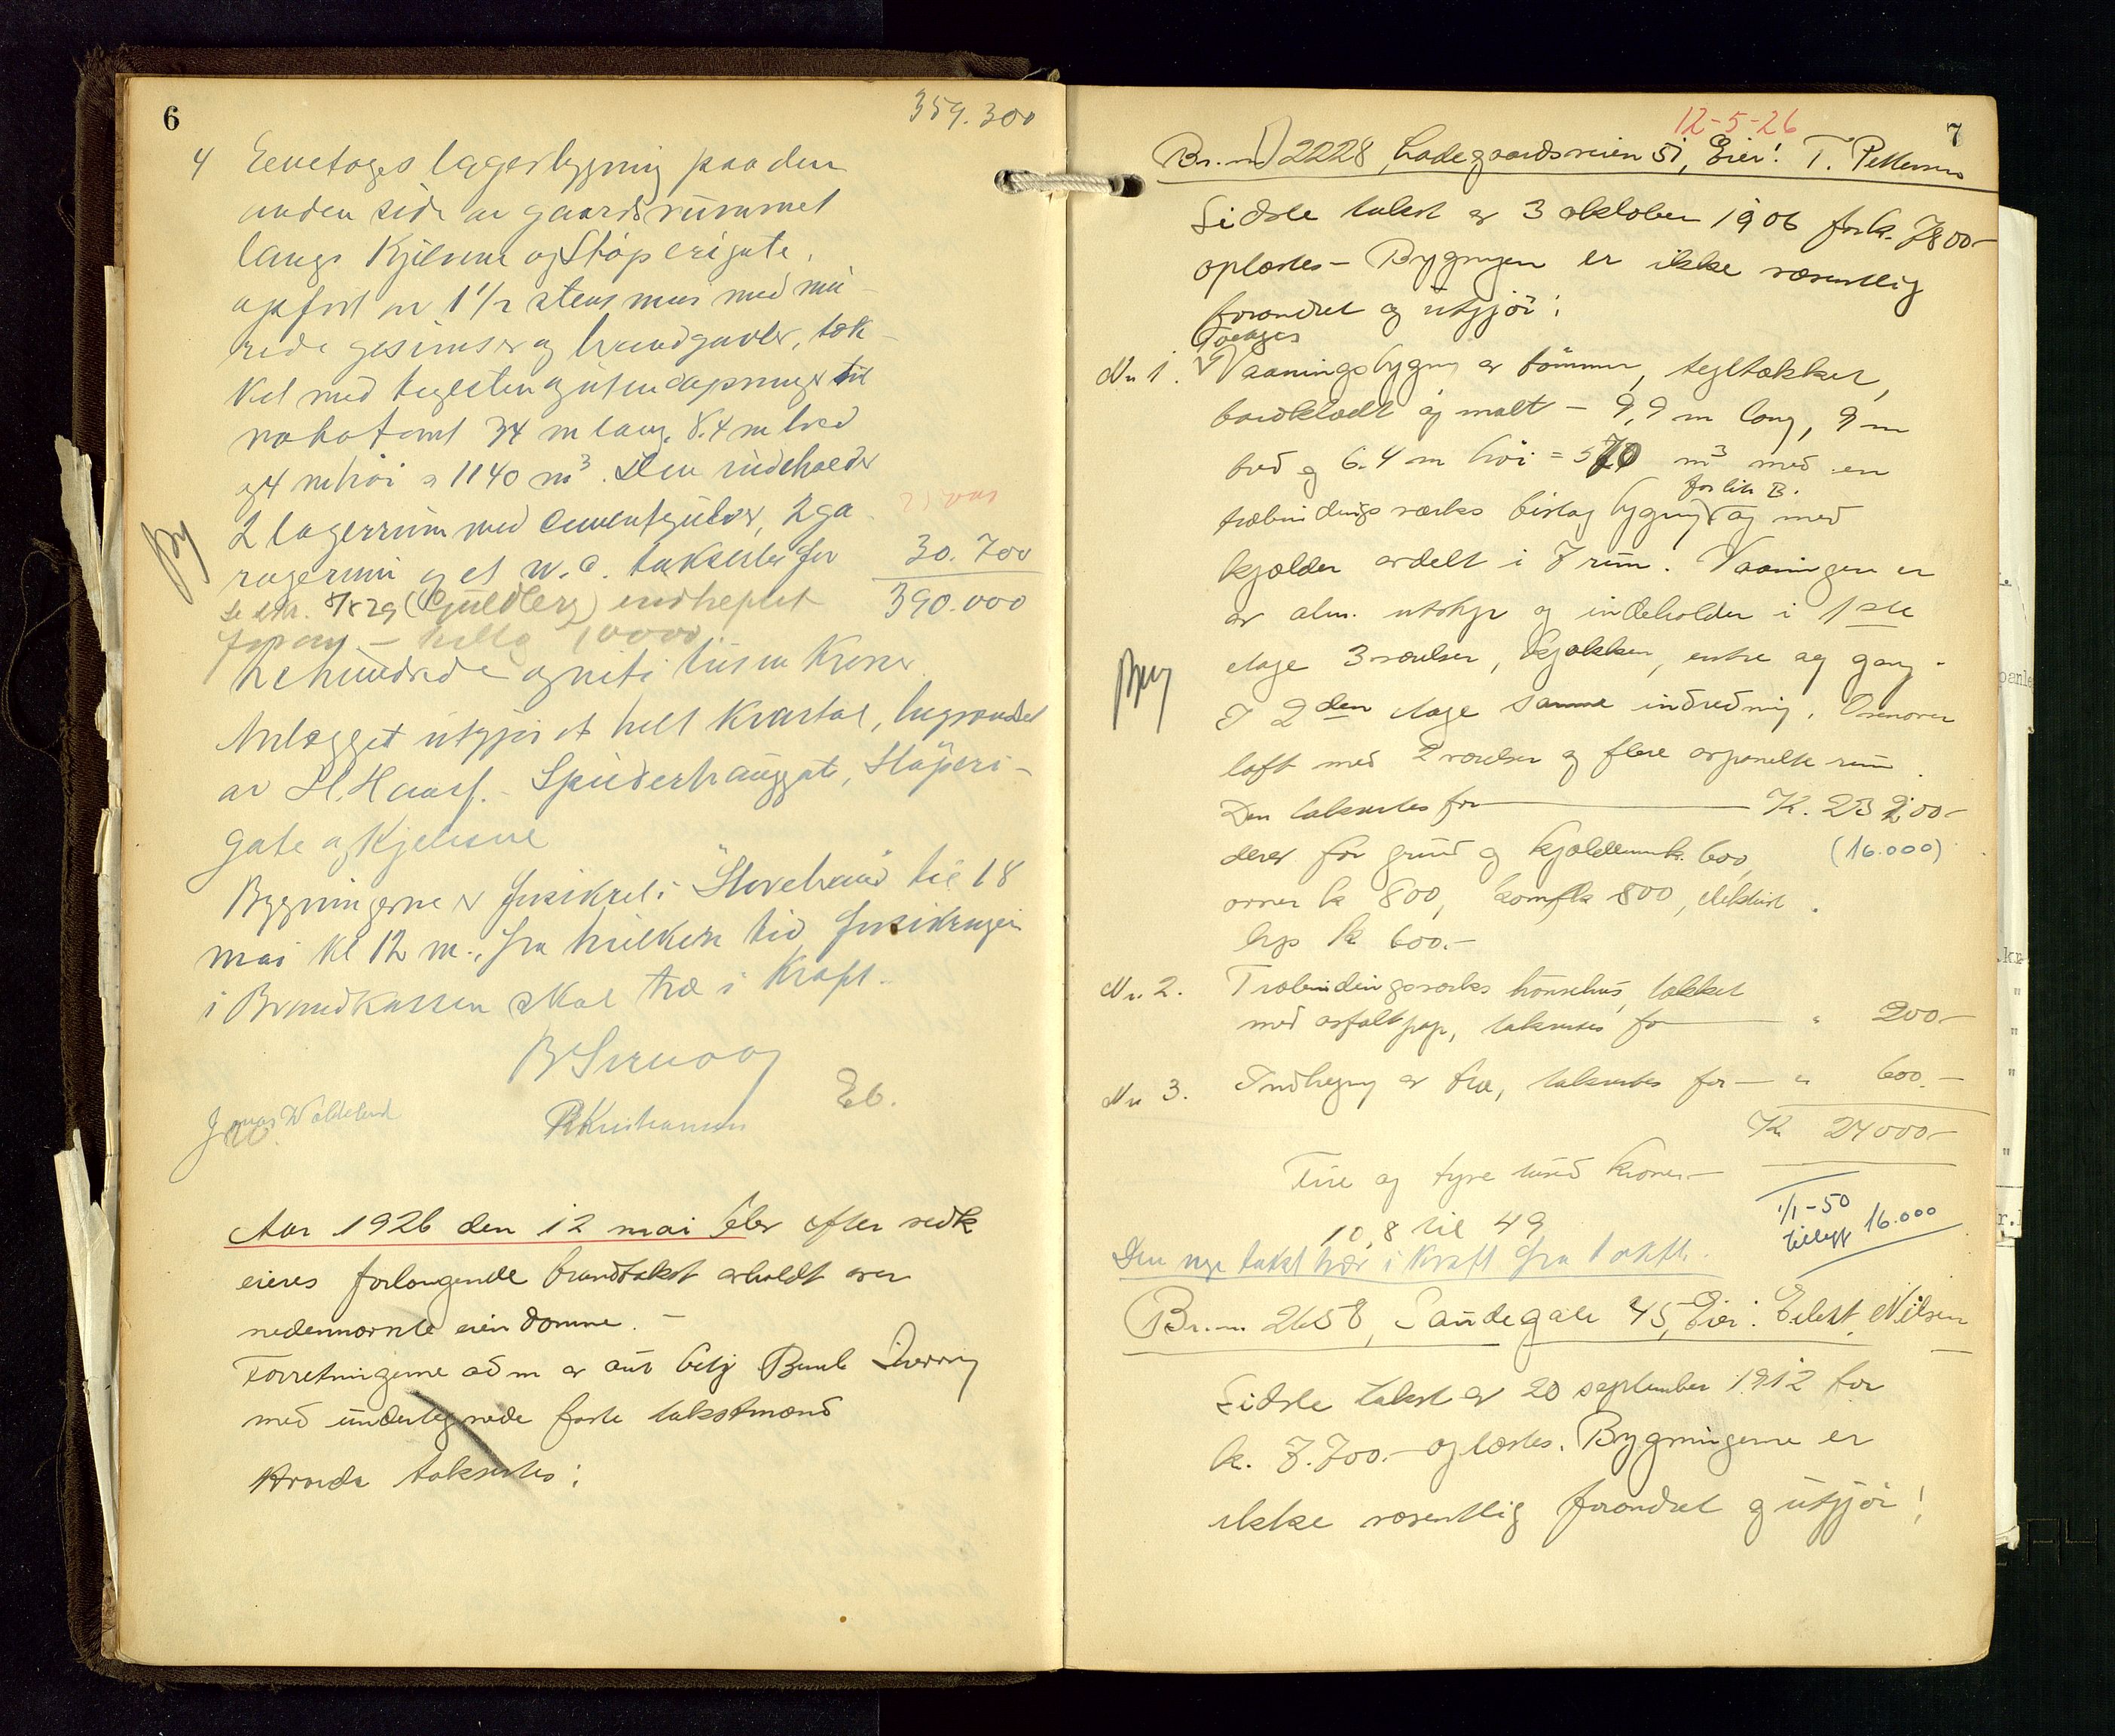 6
359.300
4 Eenetages lagerbygning paa den
anden side av gaardsrummet
langs Kjelvene og Støperigate,
opført av 1 1/2 stens mur med mu-
rede gesimser og brandgavler, tæk-
ket med teglsten og uten åpninger til
nabotomt 34 m lang, 8.4 m bred
og 4 m høi = 1140 m³. Den indeholder
2 lagerrum med cementgulver, 2 ga-
ragerum og et w.c. taksertes for 30.700
390.000
Se 8/8 29 (Guldberg) endheftet
10000
trehundrede og niti tusen Kroner
Anlægget utgjør et helt kvartal, begrænset
av St. Hansf. - Spilderhauggate, Støperi-
gate og Kjelvene
Bygningerne er forsikret i Storebrand til 18
mai kl 12 m., fra hvilken tid forsikringen
i Brandkassen skal træ i kraft.
Jonas Waldeland
Eb.
Aar 1926 den 12 mai blev efter vedk
eieres forlangende brandtakst avholdt over
nedennævnte eiendomme. -
Forretningerne adm av aut betj Bernh
med undertegnede faste takstmænd
Hvorda taksertes:
12-5-26
7
Br. nr 2228, Ladegaardsveien 51, Eier: T. Pettersen
Sidste takst av 3 oktober 1906 for k. 7800-
oplæstes - Bygningen er ikke væsentlig
forandret og utgjør:
Toetages
Nr 1. Vaaningsbygning av tømmer, tegltækket,
bordklædt og malt - 9,9 m lang, 9 m
bred og 6.4 m høi = 570 m³ med en
træbindingsværks bislag bygning og med
for litr B.
kjælder avdelt i 7 rum. Vaaningen er
av alm. utstyr og indeholder i 1ste
etage 3 værelser, kjøkken, entre og gang.
I 2den etage samme indredning. Ovenover
loft med 2 værelser og flere avpanelte rum.
Den taksertes for K. 23200-
derav for grund og kjældermur k. 600, (16.000)
ovner k 800, komf k 800, elektrisk
lys k 600.-
Nr. 2. Træbindingsværks hønsehus, tækket
med asfaltpap, taksertes for " 200.-
Nr 3. Indhegning av træ, taksertes for - " 600.-
Kr 24000-
Fire og tyve tusind kroner -
10,8 til 49
1/1-50
tillegg 16.000
Den nye takst trær i kraft fra 1 oktb.
Br. nr. 2658, Sandegate 45, Eier: Eilert Nilsen
Sidste takst av 20 september 1912 for
k. 7.700.- oplæstes. Bygningerne er
ikke væsentlig forandret og utgjør: